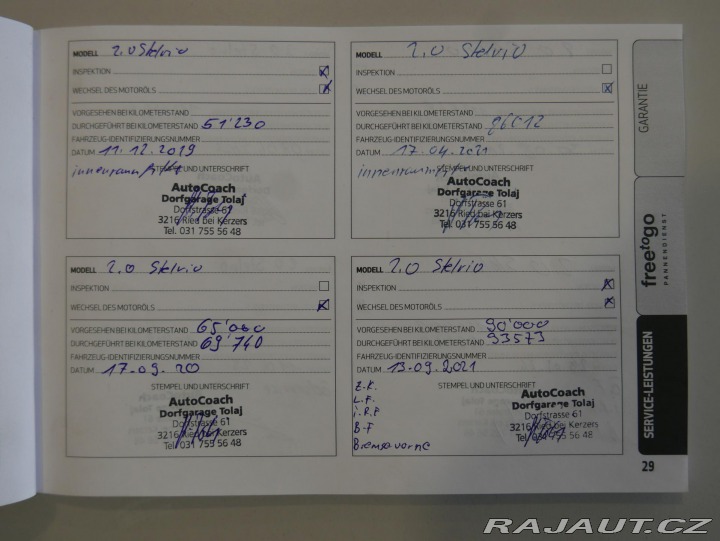 MODELL 2.0 Stelvio
INSPEKTION
WECHSEL DES MOTORÖLS
VORGESEHEN BEI KILOMETERSTAND
DURCHGEFÜHRT BEI KILOMETERSTAND 51'230
FAHRZEUG-IDENTIFIZIERUNGSNUMMER
DATUM 11.12.2019
STEMPEL UND UNTERSCHRIFT
AutoCoach
Dorfgarage Tolaj
Dorfstrasse 61
3216 Ried bei Kerzers
Tel. 031 755 56 48
MODELL 2.0 Stelvio
INSPEKTION
WECHSEL DES MOTORÖLS
VORGESEHEN BEI KILOMETERSTAND
DURCHGEFÜHRT BEI KILOMETERSTAND
FAHRZEUG-IDENTIFIZIERUNGSNUMMER
DATUM 17.04.2021
STEMPEL UND UNTERSCHRIFT
AutoCoach
Dorfgarage Tolaj
Dorfstrasse 61
3216 Ried bei Kerzers
Tel. 031 755 56 48
MODELL 2.0 Stelvio
INSPEKTION
WECHSEL DES MOTORÖLS
VORGESEHEN BEI KILOMETERSTAND 65'000
DURCHGEFÜHRT BEI KILOMETERSTAND 69'740
FAHRZEUG-IDENTIFIZIERUNGSNUMMER
DATUM 17.09.20
STEMPEL UND UNTERSCHRIFT
AutoCoach
Dorfgarage Tolaj
Dorfstrasse 61
3216 Ried bei Kerzers
Tel. 031 755 56 48
MODELL 2.0 Stelvio
INSPEKTION
WECHSEL DES MOTORÖLS
VORGESEHEN BEI KILOMETERSTAND 90'000
DURCHGEFÜHRT BEI KILOMETERSTAND 93573
FAHRZEUG-IDENTIFIZIERUNGSNUMMER
DATUM 13.09.2021
STEMPEL UND UNTERSCHRIFT
Z.K.
L.F.
i.R.F
B.F
AutoCoach
Dorfgarage Tolaj
Dorfstrasse 61
3216 Ried bei Kerzers
Tel. 031 755 56 48
GARANTIE
freetogo
PANNENDIENST
SERVICE-LEISTUNGEN
29
RAJAUT.CZ